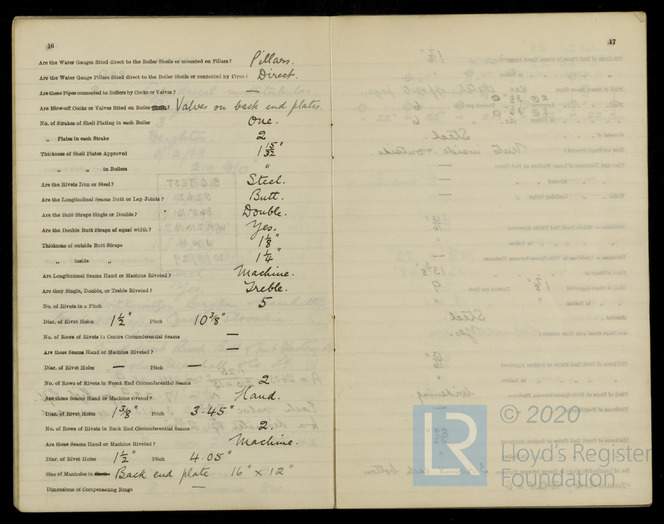 16
Are the Water Gauges fitted direct to the Boiler Shells or mounted on Pillars? Pillars.
Are the Water Gauge Pillars fitted direct to the Boiler Shells or connected by Pipes? Direct.
Are these Pipes connected to Boilers by Cocks or Valves? —
Are Blow-off Cocks or Valves fitted on Boiler Valves on back end plates.
No. of Strakes of Shell Plating in each Boiler One.
„ Plates in each Strake 2
Thickness of Shell Plates Approved 1 15/32"
„ „ in Boilers "
Are the Rivets Iron or Steel? Steel.
Are the Longitudinal Seams Butt or Lap Joints? Butt.
Are the Butt Straps Single or Double? Double.
Are the Double Butt Straps of equal width? Yes.
Thickness of outside Butt Straps 1 1/8"
„ inside „ 1 1/4"
Are Longitudinal Seams Hand or Machine Riveted? Machine.
Are they Single, Double, or Treble Riveted? Treble.
No. of Rivets in a Pitch 5
Diar. of Rivet Holes 1 1/2" Pitch 10 3/8"
No. of Rows of Rivets in Centre Circumferential Seams —
Are these Seams Hand or Machine Riveted? —
Diar. of Rivet Holes — Pitch —
No. of Rows of Rivets in Front End Circumferential Seams 2
Are these Seams Hand or Machine riveted? Hand.
Diar. of Rivet Holes 1 3/8" Pitch 3.45"
No. of Rows of Rivets in Back End Circumferential Seams 2.
Are these Seams Hand or Machine Riveted? Machine.
Diar. of Rivet Holes 1 1/2" Pitch 4.05"
Size of Manholes in Back end plate 16" × 12"
Dimensions of Compensating Rings —
17
LR © 2020
Lloyd's Register
Foundation